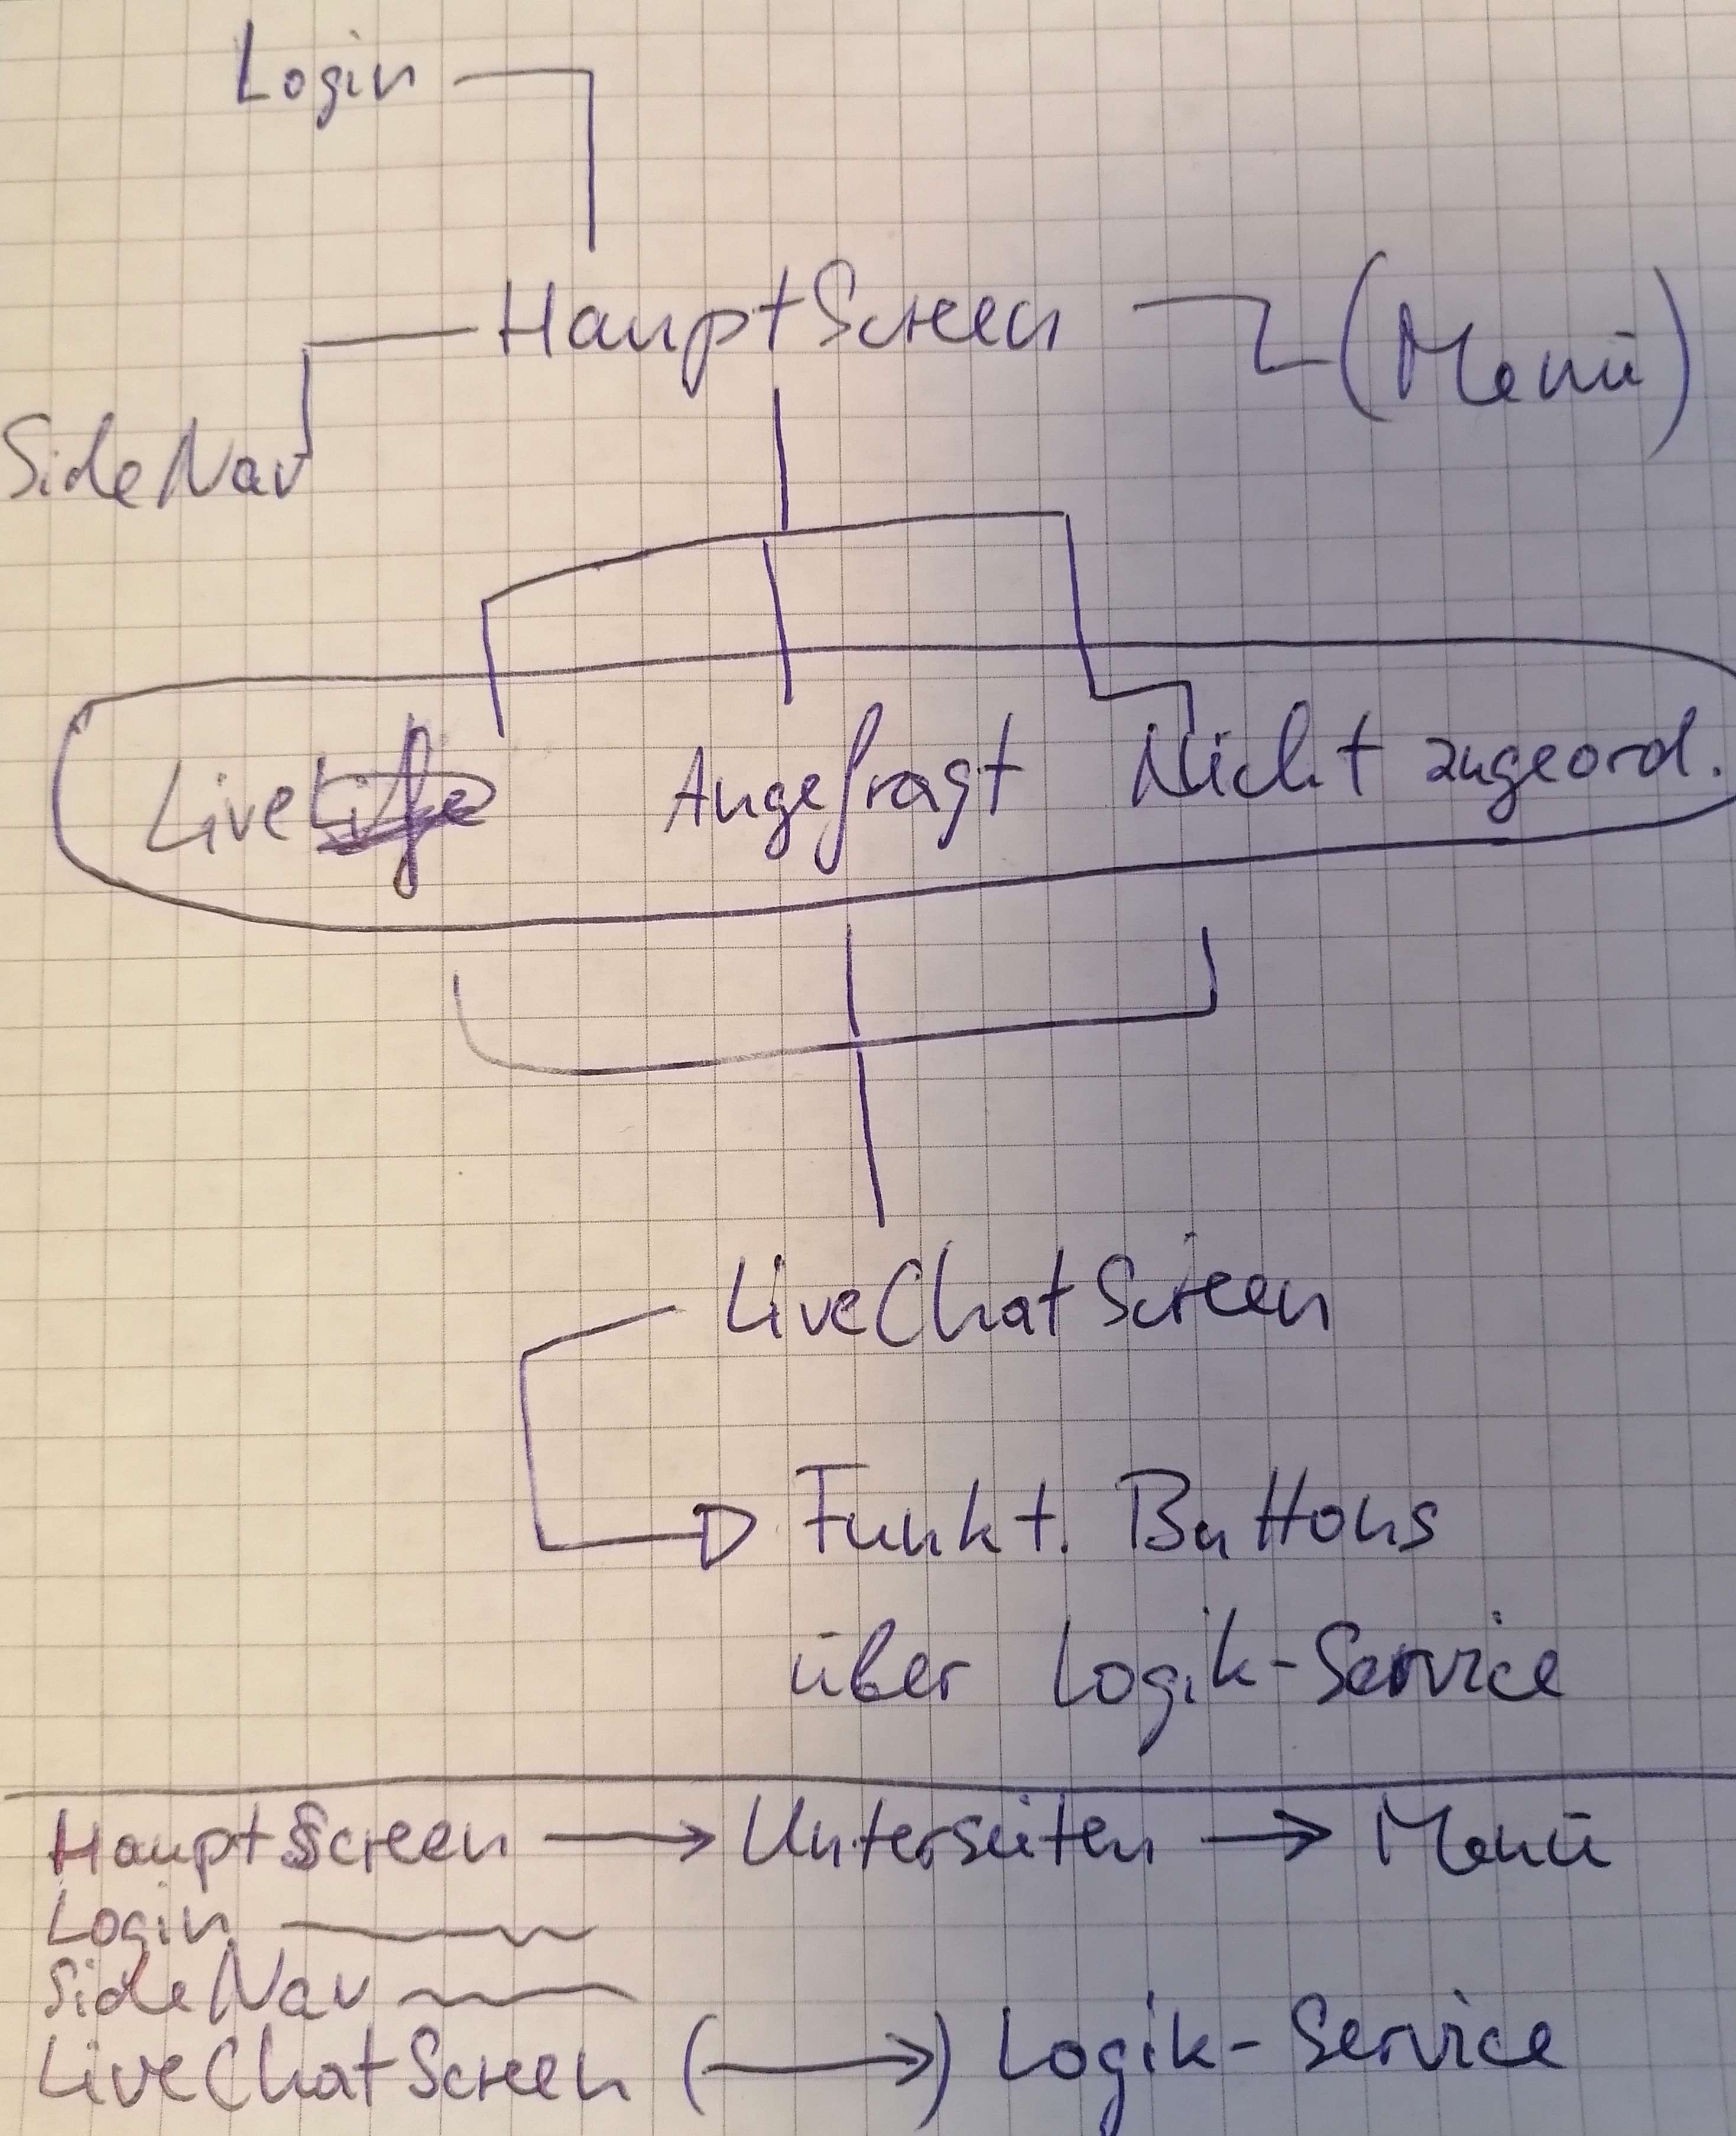 Login
HauptScreen (Menü)
SideNav
Live Angefragt Nicht zugeord.
LiveChatScreen
Funkt. Buttons
über Logik-Service
HauptScreen → Unterseiten → Menü
Login
SideNav
LiveChatScreen (→) Logik-Service